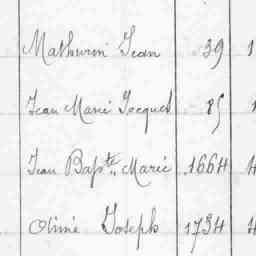 Mathurin Jean 39 1
Jean Marie Jacques 85 1
Jean Bapte Marie 1664 4
Olivié Joseph 1734 4